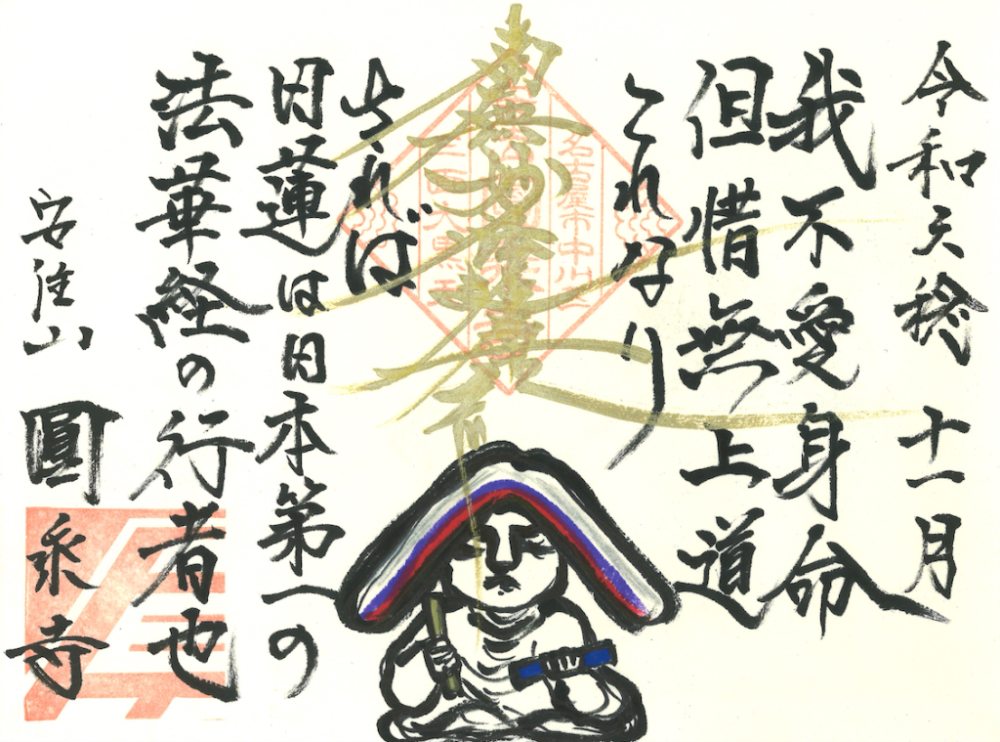 令和 十一月
我不愛身命
但惜無上道
これなり
名古屋市中川区
南無妙法蓮華経
されば
日蓮は日本第一の
法華経の行者也
安住山 圓乗寺